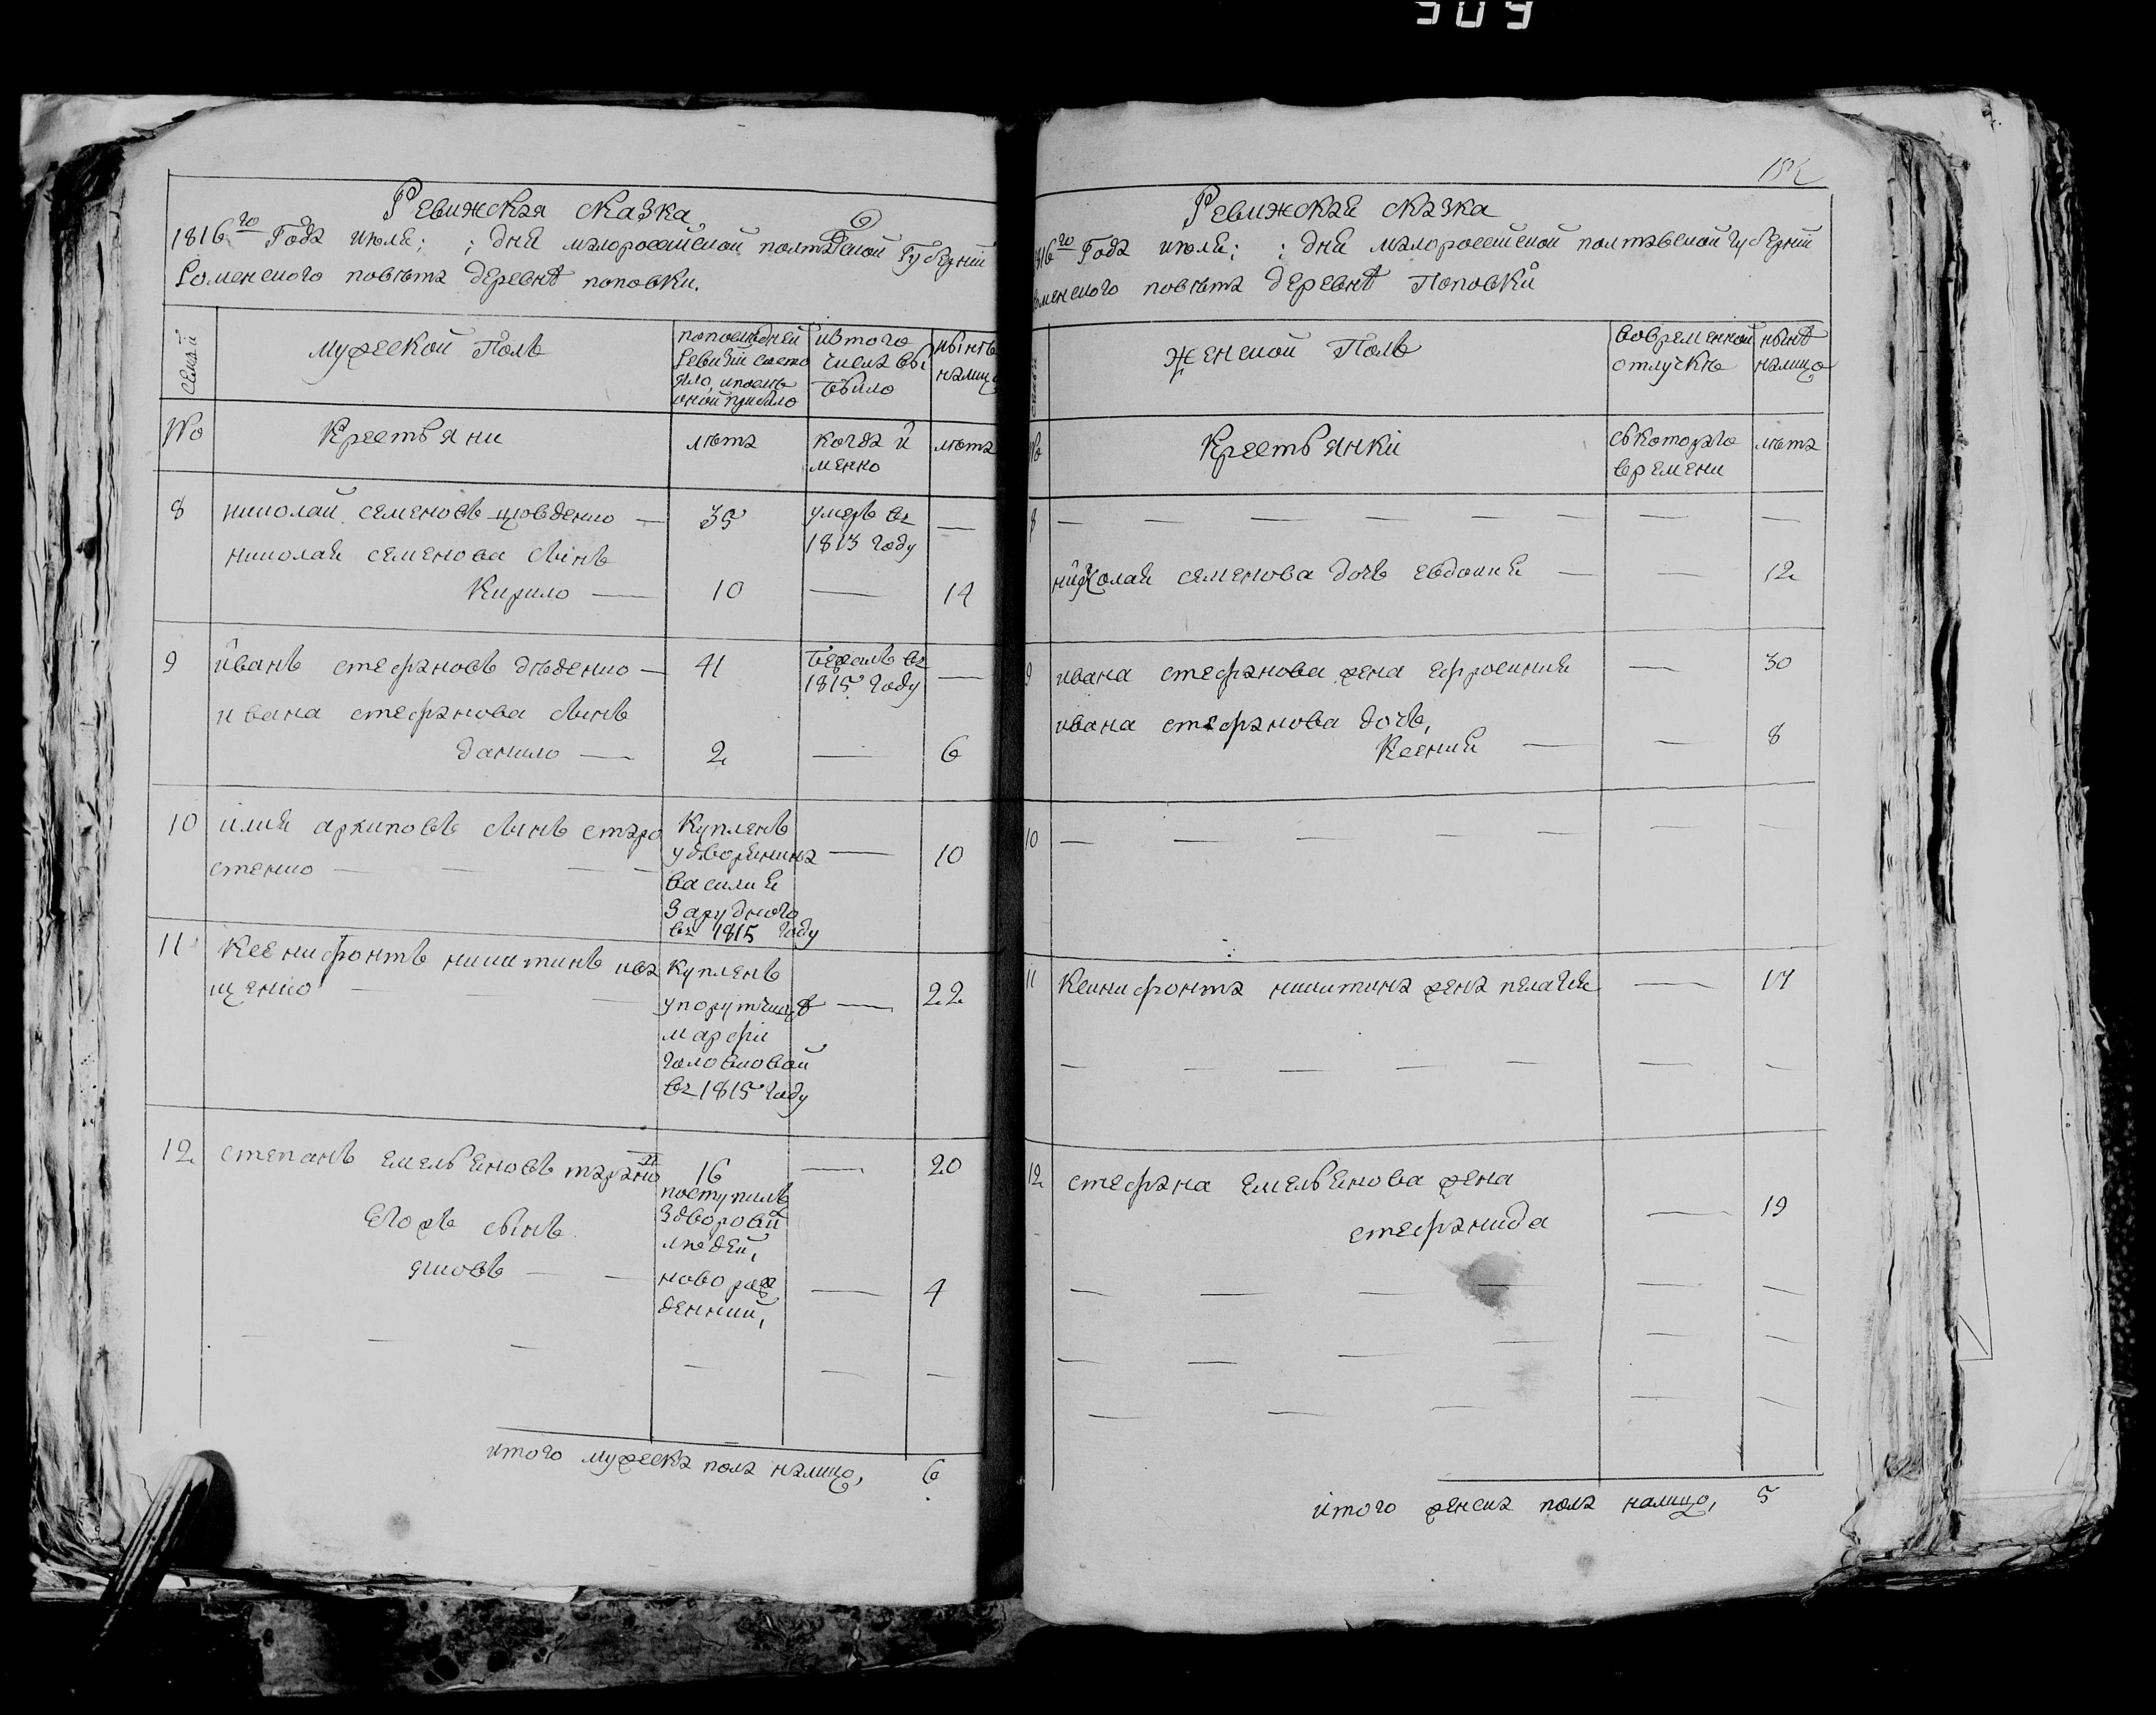 909
Ревижская сказка
6
1816го Года июля; ; дня малороссийской полтавской Губернии
Роменского повѣта деревнѣ поповки.
семьи
мужеской Полъ
попоследней
ревизии состо
яло, ипослѣ
оной прибыло
изтого
числа вы
было
нынѣ
налицо
№
Крестьяни
лѣта
когда и
менно
лѣта
8
николай семеновъ
35
умеръ въ
1813 году
—
николая семенова сынъ
Кирило —
10
—
14
9
иванъ стефановъ дѣденко —
41
бежалъ въ
1815 году
—
ивана стефанова сынъ
данило —
2
—
6
10
илия архиповъ сынъ старо
стенко — — — —
Купленъ
удворянина
василия
Зарудного
въ 1815 году
—
10
11
Ксенифонтъ никитинъ ива
щенко — —
купленъ
упорутчицѣ
марфи
головковой
въ 1815 году
—
22
12
степанъ емельяновъ таран
16
поступилъ
здворовий
людей,
—
20
Егожъ сынъ
яковъ — —
новорож
денний,
—
4
итого мужеска пола налицо, 6
Ревижская сказка
1816го Года июля; ; дня малороссийской полтавской губернии
Роменского повѣта деревнѣ Поповки
женской Полъ
вовременной
отлучкѣ
нынѣ
налицо
№
Крестьянки
скоторого
времени
лѣта
8 — — — — — — — —
николая семенова дочь евдокия — — 12
9
ивана стефанова жена ефросиния — 30
ивана стефанова дочь,
Ксения — — 8
10 — — — — — — —
11
Ксинифонта никитина жена пелагия — 17
— — — — — — —
12
стефана емельянова жена
стефанида — 19
— — — — — —
— — — — — —
— — — — —
итого женска пола налицо, 5